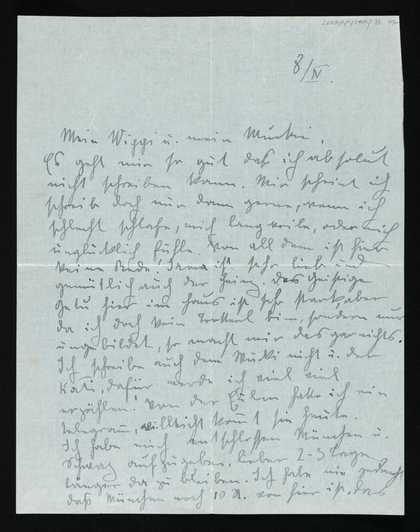 8/IV.
Mein Wippi u. mein Mucki,
Es geht mir so gut daß ich absolut
nicht schreiben kann. Mir scheint ich
schreibe doch nur dann gerne, wenn ich
schlecht schlafe, mich langweile, oder mich
unglücklich fühle. Von all dem ist hier
keine Rede! ist sehr lieb und
gemütlich auch der Heinz, das Geistige
Getu hier im Haus ist sehr stark, aber
da ich doch kein Trottel bin, sondern nur
ungebildet, so macht mir das gar nichts.
Ich schreibe auch dem Mucki nicht u. der
Kati, dafür werde ich viel viel
erzählen. Von der hatte ich ein
Telegramm, vielleicht kommt sie heute.
Ich habe mich entschlossen München u.
Schwaz aufzugeben, lieber 2-3 Tage
länger da zu bleiben. Ich habe nie gedacht
daß München noch 10 St. von hier ist, das